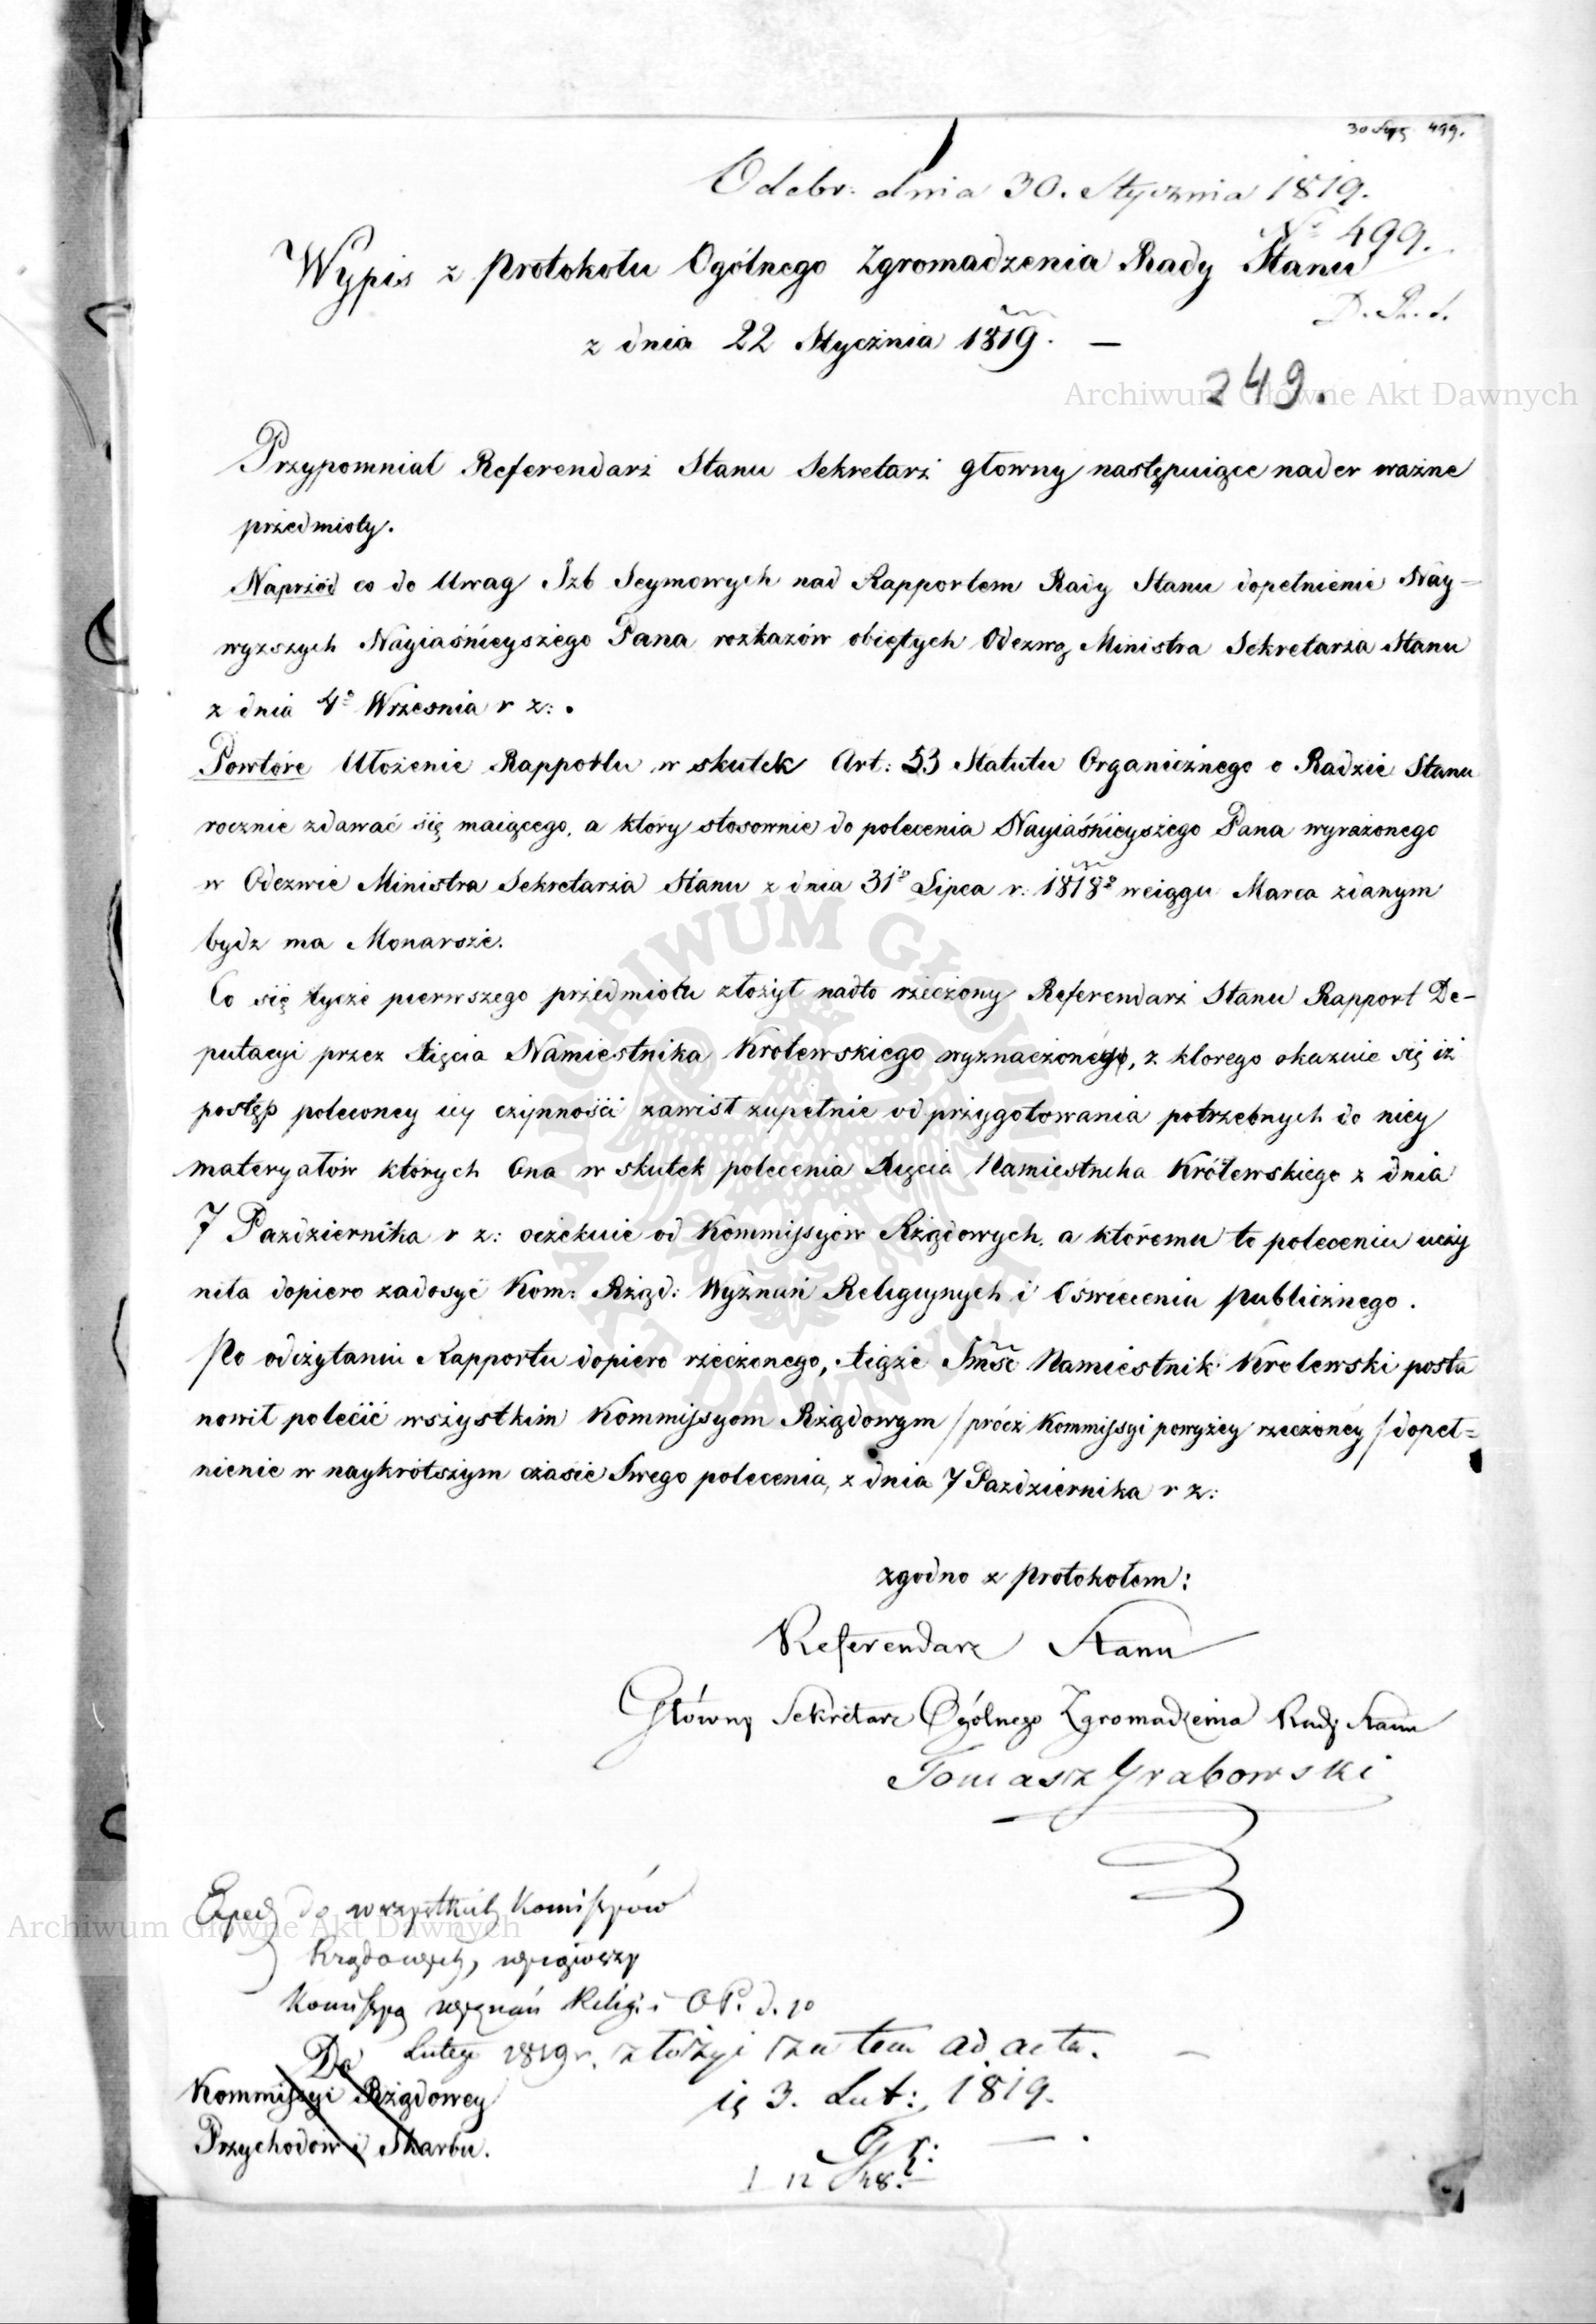 499.
Odebr: dnia 30. Stycznia 1819.
Nº 499.
Wypis z protokołu Ogólnego Zgromadzenia Rady Stanu
z dnia 22 Stycznia 1819. —
249.
Archiwum Główne Akt Dawnych
Przypomniał Referendarz Stanu Sekretarz głowny następuiące nader ważne
przedmioty.
Naprzód co do Uwag Izb Seymowych nad Rapportem Rady Stanu dopełnienie Nay-
wyższych Nayiaśnieyszego Pana rozkazów obiętych Odezwą Ministra Sekretarza Stanu
z dnia 4º Września r z:.
Powtóre Ułożenie Rapportu w skutek Art: 53 Statutu Organicznego o Radzie Stanu
rocznie zdawać się maiącego, a który stosownie do polecenia Nayiaśnieyszego Pana wyrażonego
w Odezwie Ministra Sekretarza Stanu z dnia 31º Lipca r. 1818º wciągu Marca zdanym
bydz ma Monarsze.
Co się tycze pierwszego przedmiotu złożył nadto rzeczony Referendarz Stanu Rapport De-
putacyi przez Xięcia Namiestnika Krolewskiego wyznaczoney, z ktorego okazuie się iż
postęp poleconey iey czynności zawisł zupełnie od przygotowania potrzebnych do niey
materyałów których Ona w skutek polecenia Xięcia Namiestnika Królewskiego z dnia
7 Pazdziernika r z: oczekuie od Kommissyów Rządowych, a któremu to poleceniu uczy
niła dopiero zadosyć Kom: Rząd: Wyznań Religiynych i Oświecenia publicznego.
Po odczytaniu Rapportu dopiero rzeczonego, Xiąże Jmść Namiestnik Krolewski posta
nowił polecić wszystkim Kommissyom Rządowym /prócz Kommissyi powyżey rzeczoney/ dopeł=
nienie w naykrótszym czasie Swego polecenia, z dnia 7 Pazdziernika r z:
zgodno z protokołem:
Referendarz Stanu
Główny Sekretarz Ogólnego Zgromadzenia Rady Stanu
Tomasz Grabowski
Exped do wszystkich Komissyów
Archiwum Główne Akt Dawnych
Rządowych, wyiąwszy
Komissyą wyznań Religi: i OP. d. 10
Lutego 1819 r. złożyć zatem ad acta. —
Do
Kommissyi Rządowey
Przychodów i Skarbu.
3. Lut: 1819.
ARCHIWUM GŁÓWNE AKT DAWNYCH